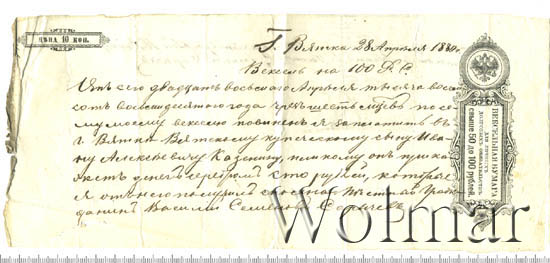 ЦѢНА 10 КОП.
Г. Вятка 28 Апрѣля 1880 г.
Вексель на 100 р. с.
Отъ сего двадцать восьмаго Апрѣля тысяча восем
сотъ восьмидесятаго года чрезъ шесть мѣсяц по се
му моему векселю повиненъ я заплатить въ
г. Вятки Вятскому купеческому сыну Ива
ну Алексѣевичу или кому онъ прика
жетъ денегъ серебромъ сто рублей, которые
я отъ него получилъ сполна Граж
данинъ Василій Семеновъ
ВЕКСЕЛЬНАЯ БУМАГА
ДЛЯ ПИСЬМА
ДОЛГОВЫХЪ ОБЯЗАТЕЛЬСТВЪ
свыше 50 до 100 рублей.
Wolmar